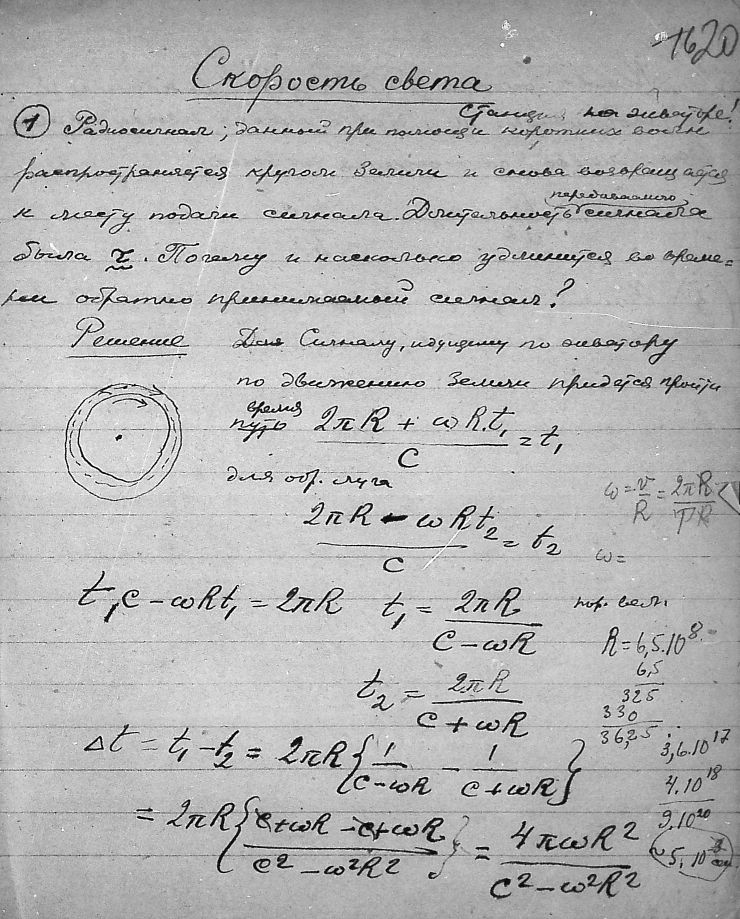 1620
Скорость света
станция на экваторе!
① Радиосигнал, данный при помощи коротких волн
распространяется кругом Земли и снова возвращается
передаваемого
к месту подачи сигнала. Длительность сигнала
была τ. Почему и насколько удлинится во време-
ни обратно принимаемый сигнал?
Решение Для Сигналу, идущему по экватору
по движению Земли придется пройти
время
путь (2πR + ωRt₁)/C = t₁
для обр. луча
ω = v/R = 2πR/TR
(2πR - ωRt₂)/C = t₂
ω =
t₁C - ωRt₁ = 2πR t₁ = 2πR/(C - ωR)
пор. вел.
R = 6,5.10⁸
6,5
325
t₂ = 2πR/(C + ωR)
330
36,25
Δt = t₁ - t₂ = 2πR{1/(C - ωR) - 1/(C + ωR)}
3,6.10¹⁷
4.10¹⁸
= 2πR{(C + ωR - C + ωR)/(C² - ω²R²)} = 4πωR²/(C² - ω²R²)
9.10²⁰